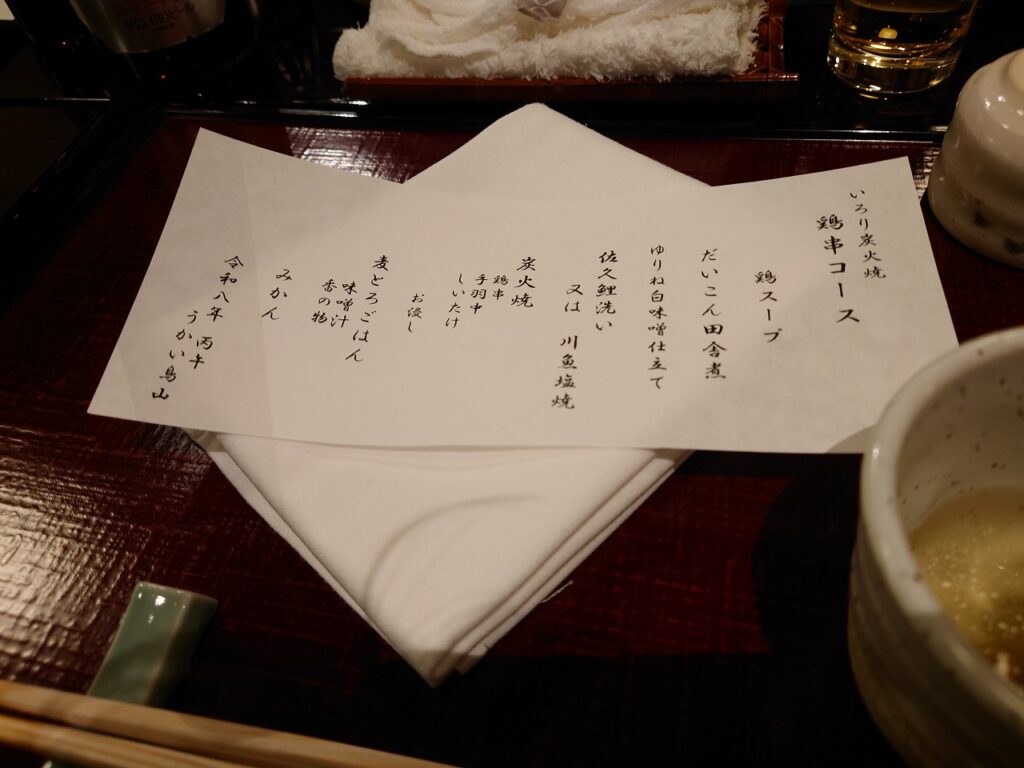 いろり炭火焼
鶏串コース
鶏スープ
だいこん田舎煮
ゆりね白味噌仕立て
佐久鯉洗い
又は 川魚塩焼
炭火焼
鶏串
手羽中
しいたけ
お浸し
麦とろごはん
味噌汁
香の物
みかん
令和八年 丙午
うかい鳥山
辛口〈生〉ビール